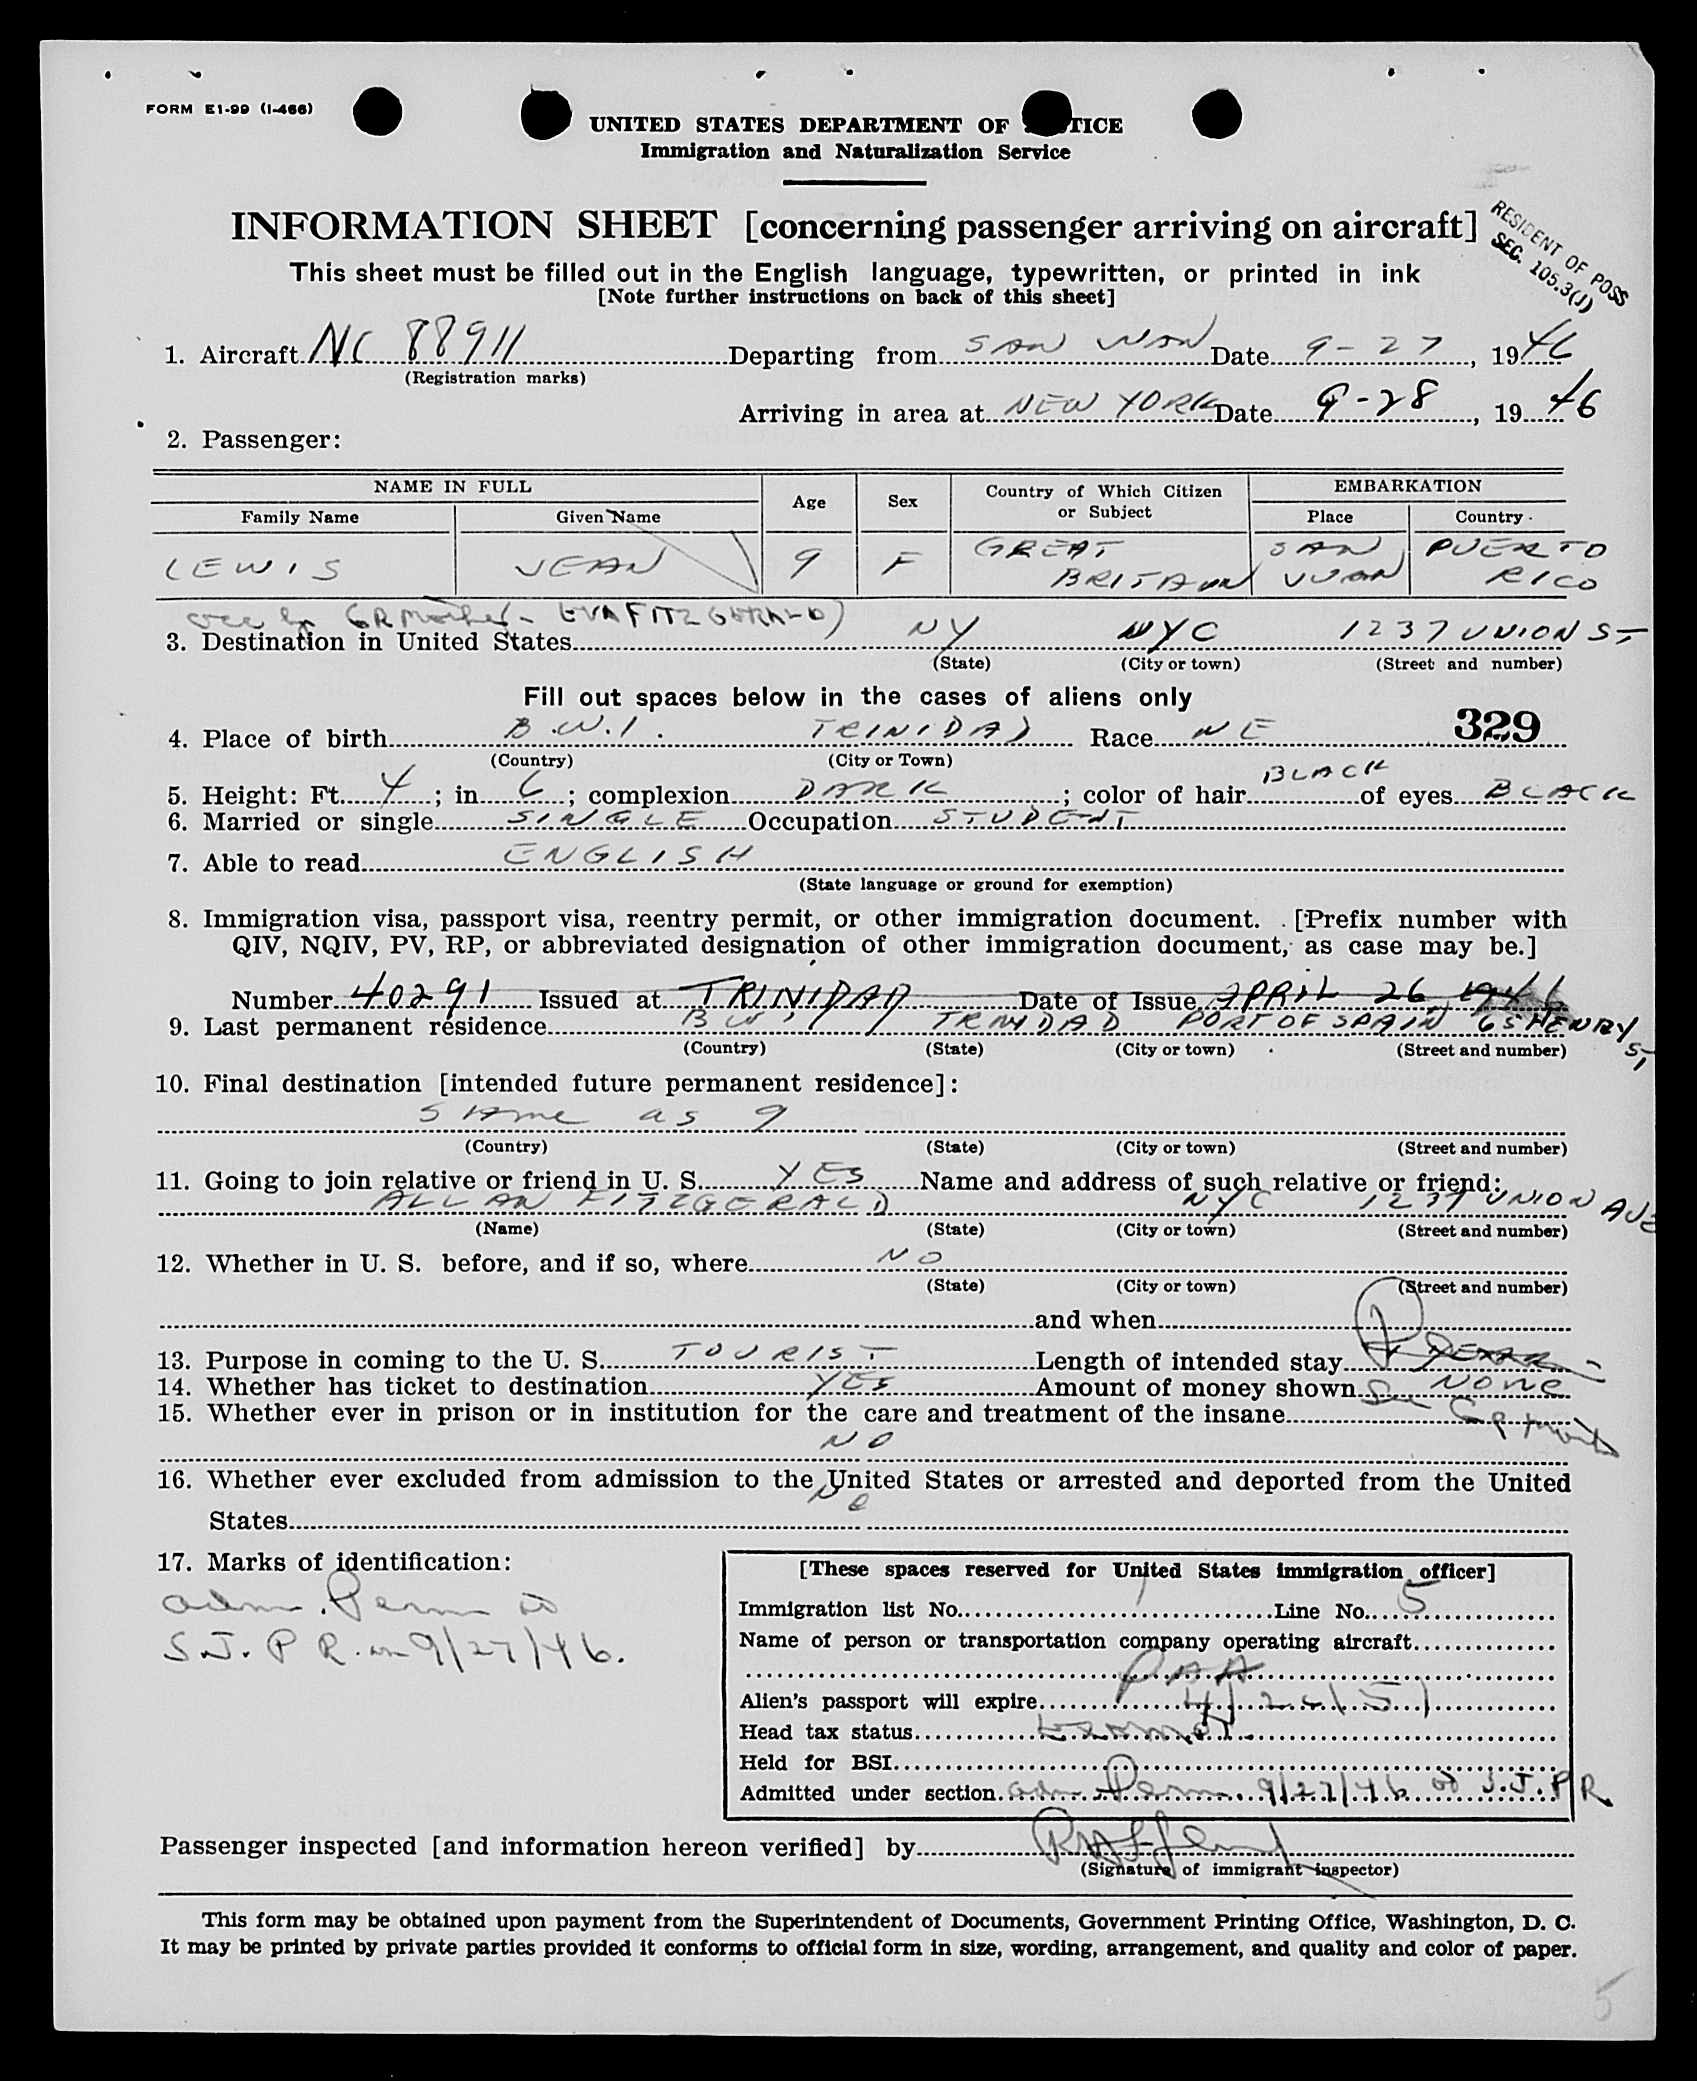 FORM E1-99 (I-466)
UNITED STATES DEPARTMENT OF TICE
Immigration and Naturalization Service
INFORMATION SHEET [concerning passenger arriving on aircraft]
RESIDENT OF POSS
SEC. 105.3(J)
This sheet must be filled out in the English language, typewritten, or printed in ink
[Note further instructions on back of this sheet]
1. Aircraft NC 88911 Departing from SAN JUAN Date 9-27, 1946
(Registration marks)
Arriving in area at NEW YORK Date 9-28, 1946
2. Passenger:
NAME IN FULL Age Sex Country of Which Citizen or Subject EMBARKATION
Family Name Given Name Place Country
LEWIS JEAN 9 F GREAT BRITAIN SAN JUAN PUERTO RICO
GR Mother - EVA FITZGERALD)
3. Destination in United States NY NYC 1237 UNION ST
(State) (City or town) (Street and number)
Fill out spaces below in the cases of aliens only
329
4. Place of birth B.W.I. TRINIDAD Race NE
(Country) (City or Town)
5. Height: Ft. 4; in. 6; complexion DARK; color of hair BLACK of eyes BLACK
6. Married or single SINGLE Occupation STUDENT
7. Able to read ENGLISH
(State language or ground for exemption)
8. Immigration visa, passport visa, reentry permit, or other immigration document. [Prefix number with
QIV, NQIV, PV, RP, or abbreviated designation of other immigration document, as case may be.]
Number 40291 Issued at TRINIDAD Date of Issue APRIL 26, 1946
9. Last permanent residence BWI TRINIDAD PORT OF SPAIN 65 HENRY ST
(Country) (State) (City or town) (Street and number)
10. Final destination [intended future permanent residence]:
SAme as 9
(Country) (State) (City or town) (Street and number)
11. Going to join relative or friend in U. S. YES Name and address of such relative or friend:
ALLAN FITZGERALD NYC 1237 UNION AVE
(Name) (State) (City or town) (Street and number)
12. Whether in U. S. before, and if so, where NO
(State) (City or town) (Street and number)
and when
13. Purpose in coming to the U. S. TOURIST Length of intended stay
14. Whether has ticket to destination YES Amount of money shown NONE
15. Whether ever in prison or in institution for the care and treatment of the insane
See Gr mother
NO
16. Whether ever excluded from admission to the United States or arrested and deported from the United
States No
17. Marks of identification:
adm. Perm at
S.J. P R. on 9/27/46.
[These spaces reserved for United States immigration officer]
Immigration list No. 1 Line No. 5
Name of person or transportation company operating aircraft
PAA
Alien's passport will expire 4/26/51
Head tax status Exempt
Held for BSI
Admitted under section adm Perm 9/27/46 at S.J. PR
Passenger inspected [and information hereon verified] by
(Signature of immigrant inspector)
This form may be obtained upon payment from the Superintendent of Documents, Government Printing Office, Washington, D. C.
It may be printed by private parties provided it conforms to official form in size, wording, arrangement, and quality and color of paper.
5